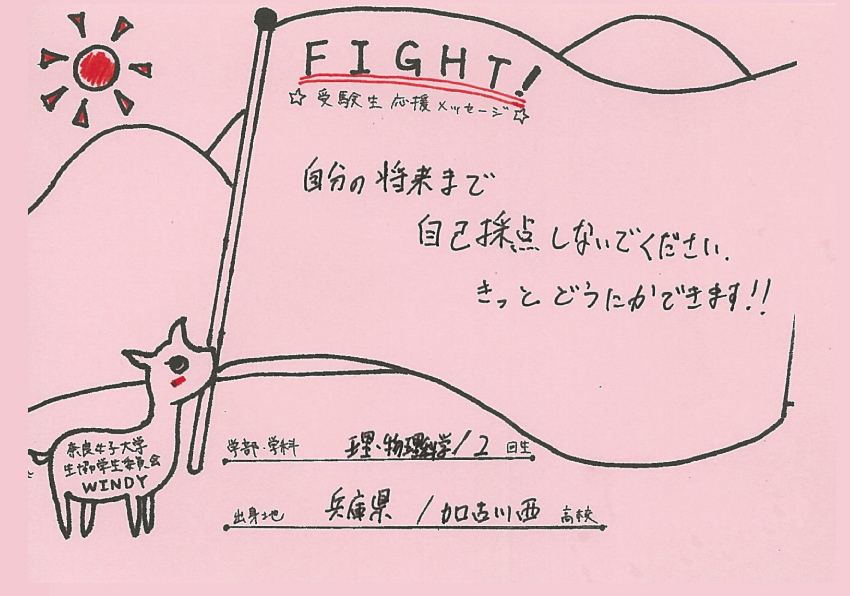 FIGHT!
☆ 受験生 応援 メッセージ☆
自分の将来まで
自己採点しないでください.
きっと どうにかできます!!
学部・学科 理・物理科学/2 回生
出身地 兵庫県 /加古川西 高校
奈良女子大学
生協学生委員会
WINDY